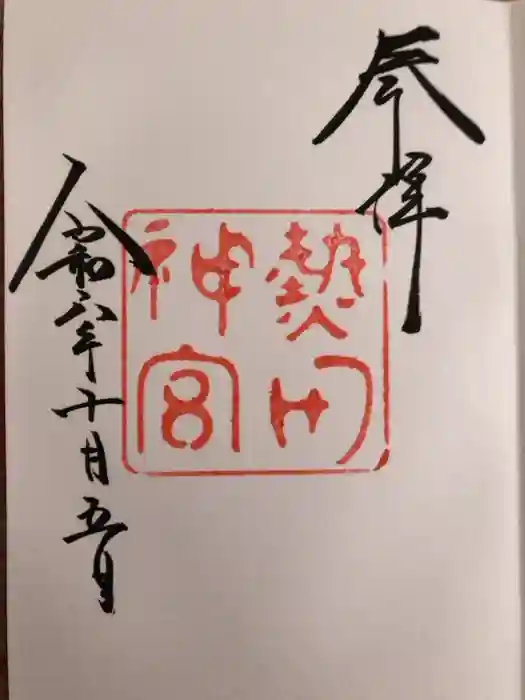 参拝
熱田
神宮
令和六年十月五日